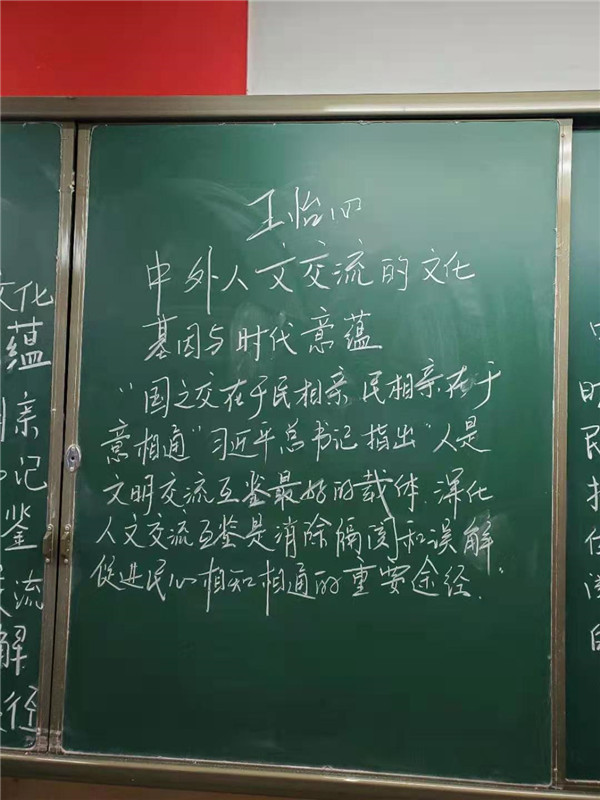 王怡
中外人文交流的文化
基因与时代意蕴
"国之交在于民相亲 民相亲在于
意相通"习近平总书记指出"人是
文明交流互鉴最好的载体.深化
人文交流互鉴是消除隔阂和误解
促进民心相知相通的重要途经."
文化
蕴
亲
记
鉴
流
解
径
时
民